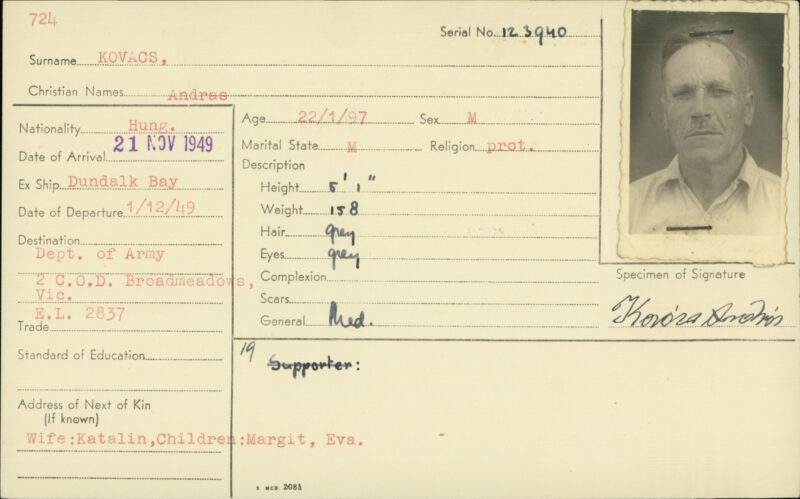 724
Serial No. 123940
Surname KOVACS,
Christian Names Andras
Nationality Hung.
Date of Arrival 21 NOV 1949
Ex Ship Dundalk Bay
Date of Departure 1/12/49
Destination
Dept. of Army
2 C.O.D. Broadmeadows,
Vic.
E.L. 2837
Trade
Standard of Education
Address of Next of Kin
(If known)
Wife:Katalin,Children:Margit, Eva.
Age 22/1/97 Sex M
Marital State M Religion prot.
Description
Height 5' 1"
Weight 158
Hair grey
Eyes grey
Complexion
Scars
General Med.
Specimen of Signature
Kovács András
19 Supporter:
S. MCD. 2083